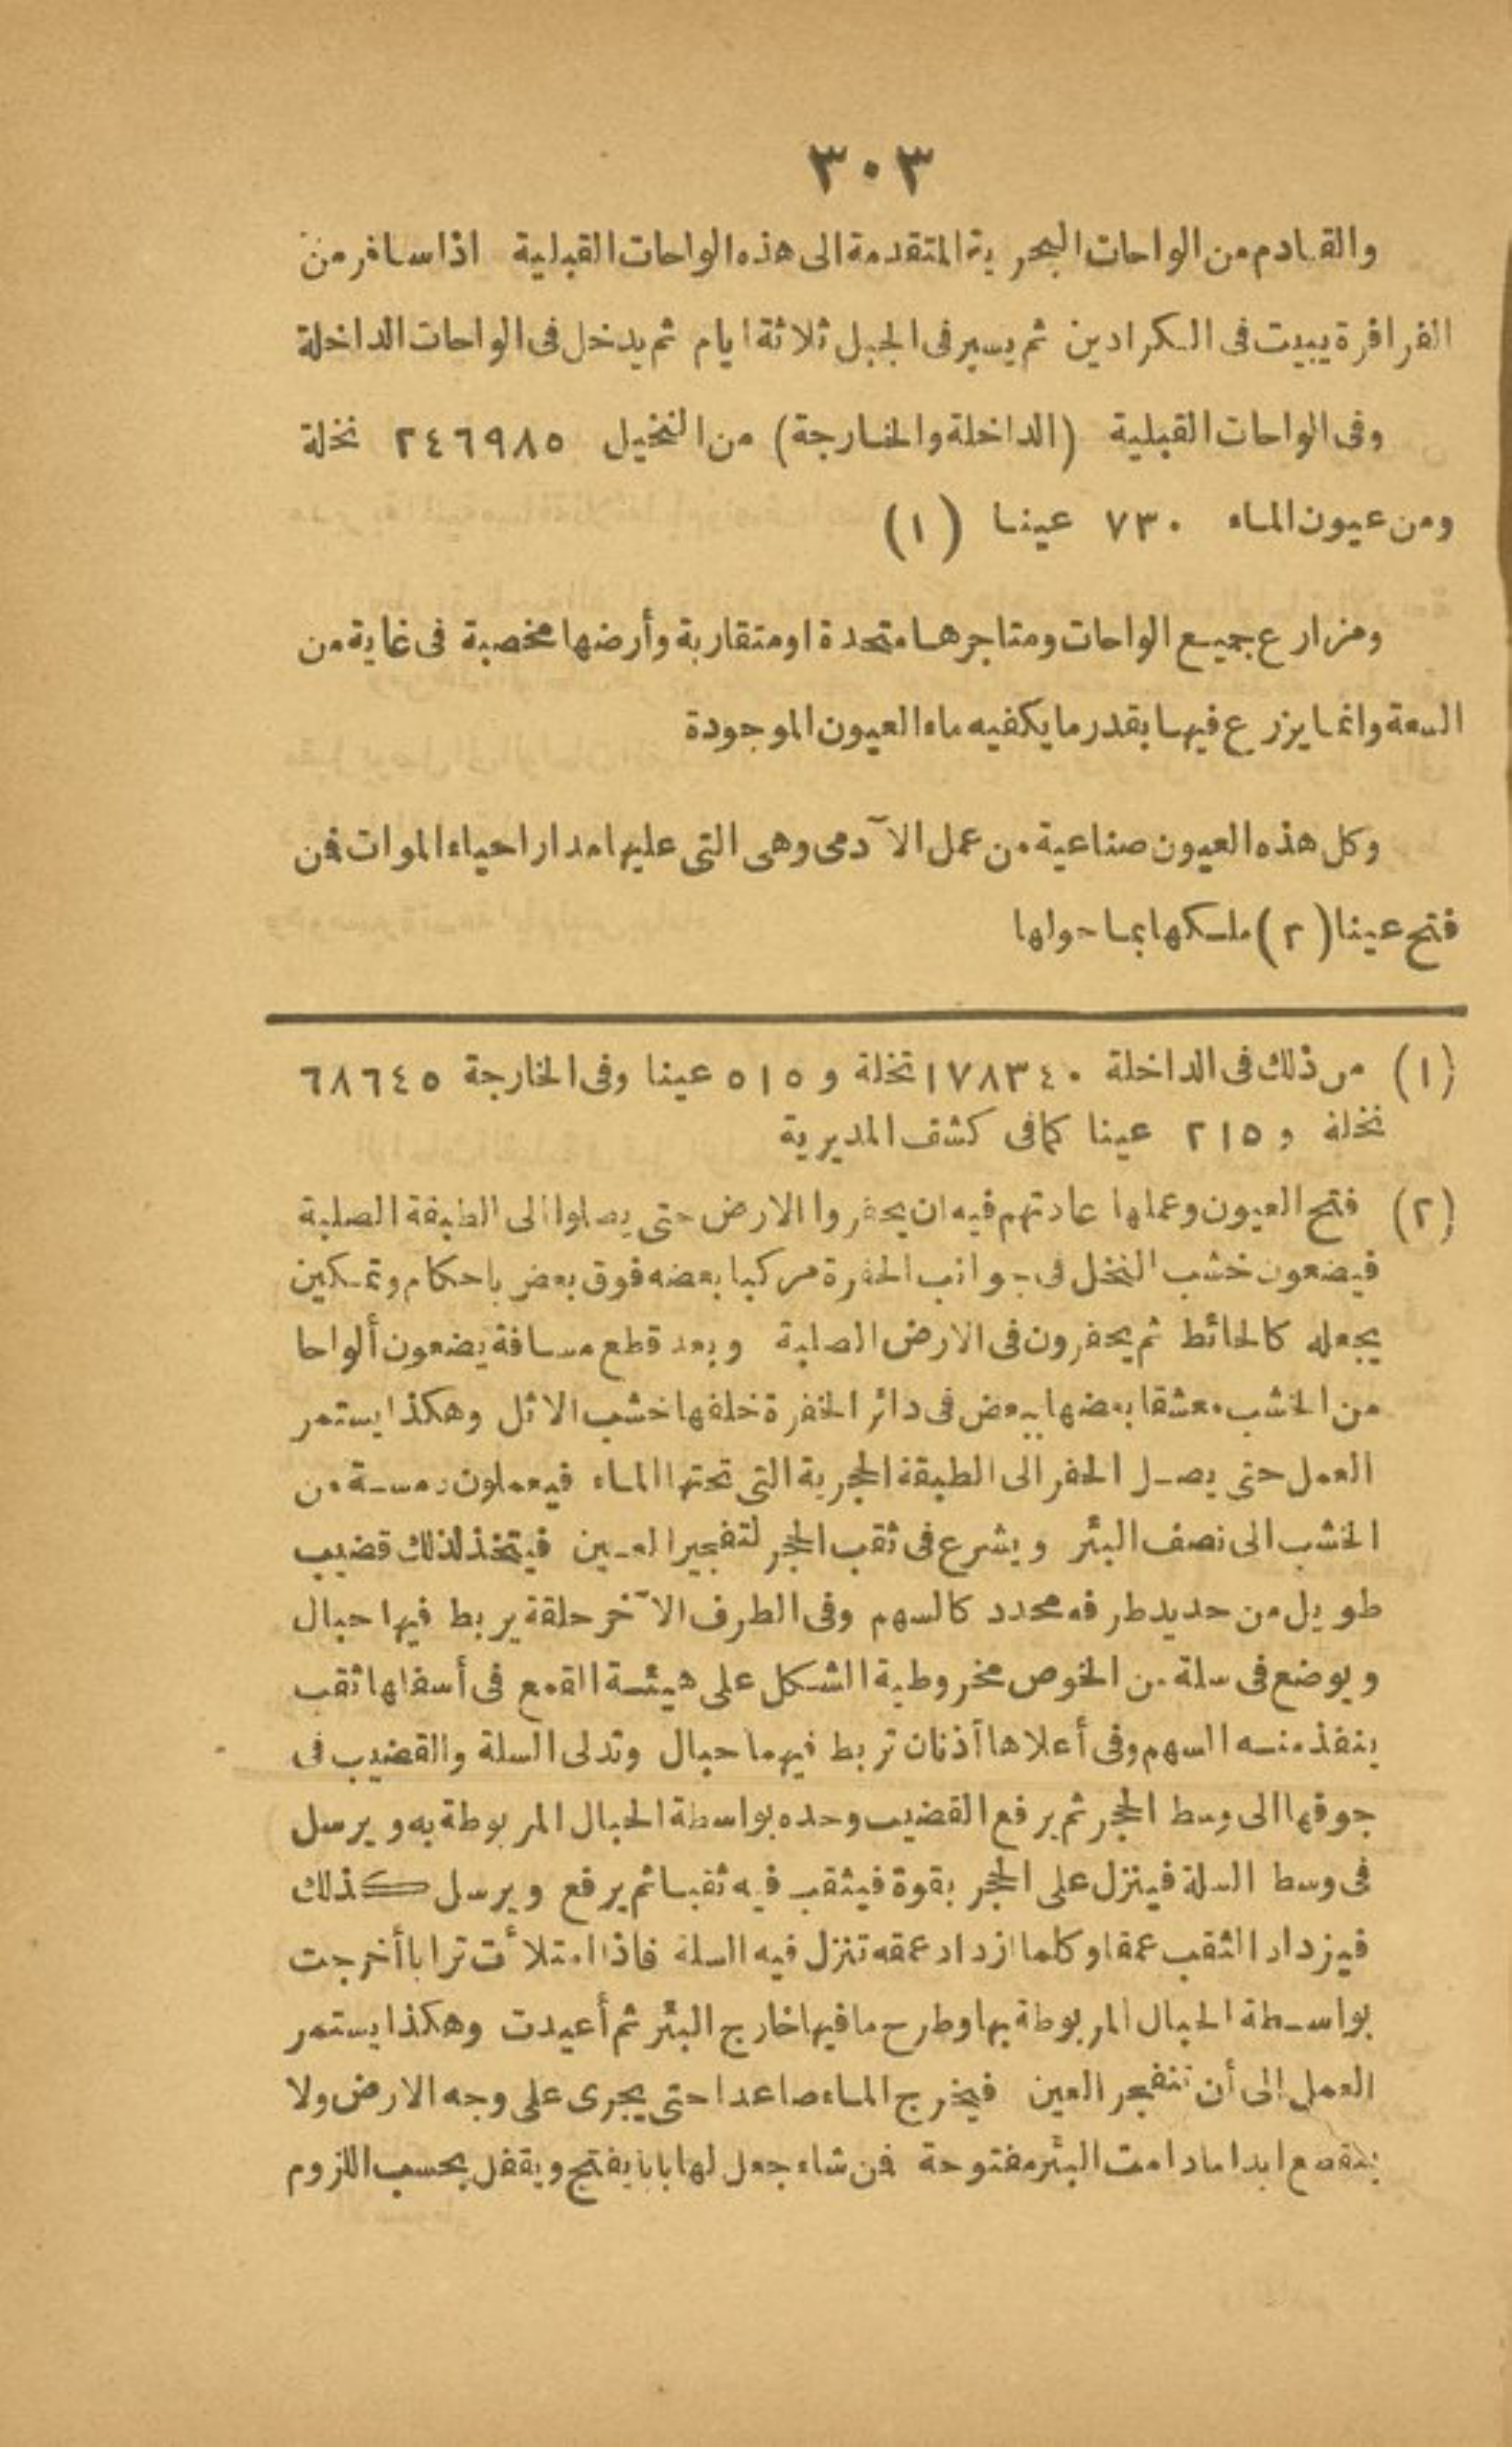 ٣٠٣
والقادم من الواحات البحرية المتقدمة الى هذه الواحات القبلية اذا سافر من
الفرافرة يبيت فى الكرادين ثم يسير فى الجبل ثلاثة ايام ثم يدخل فى الواحات الداخلة
وفى الواحات القبلية (الداخلة والخارجة) من النخيل ٢٤٦٩٨٥ نخلة
ومن عيون الماء ٧٣٠ عينا (١)
ومزارع جميع الواحات ومتاجرها متحدة او متقاربة وأرضها مخصبة فى غاية من
السعة وانما يزرع فيها بقدر ما يكفيه ماء العيون الموجودة
وكل هذه العيون صناعية من عمل الآدمى وهى التى عليها مدار احياء الموات فمن
فتح عينا (٢) ملكها بما حولها
(١) من ذلك فى الداخلة ١٧٨٣٤٠ نخلة و ٥١٥ عينا وفى الخارجة ٦٨٦٤٥
نخلة و ٢١٥ عينا كما فى كشف المديرية
(٢) فتح العيون وعملها عادتهم فيه ان يحفروا الارض حتى يصلوا الى الطبقة الصلبة
فيضعون خشب النخل فى جوانب الحفرة مركبا بعضه فوق بعض باحكام وتمكين
يجعله كالحائط ثم يحفرون فى الارض الصلبة وبعد قطع مسافة يضعون ألواحا
من الخشب معشقا بعضها ببعض فى دائر الحفرة خلفها خشب الاثل وهكذا يستمر
العمل حتى يصل الحفر الى الطبقة الحجرية التى تحتها الماء فيعملون دمسة من
الخشب الى نصف البئر ويشرع فى ثقب الحجر لتفجير العين فيتخذ لذلك قضيب
طويل من حديد طرفه محدد كالسهم وفى الطرف الآخر حلقة يربط فيها حبال
ويوضع فى سلة من الخوص مخروطية الشكل على هيئة القمع فى أسفلها ثقب
ينفذ منه السهم وفى أعلاها أذنان تربط فيهما حبال وتدلى السلة والقضيب فى
جوفها الى وسط الحجر ثم يرفع القضيب وحده بواسطة الحبال المربوطة به ويرسل
فى وسط السلة فينزل على الحجر بقوة فيثقب فيه ثقبا ثم يرفع ويرسل كذلك
فيزداد الثقب عمقا وكلما ازداد عمقه تنزل فيه السلة فاذا امتلأت ترابا أخرجت
بواسطة الحبال المربوطة بها وطرح ما فيها خارج البئر ثم أعيدت وهكذا يستمر
العمل إلى أن تنفجر العين فيخرج الماء صاعدا حتى يجرى على وجه الارض ولا
ابدا ما دامت البئر مفتوحة فمن شاء جعل لها بابا يفتح ويقفل بحسب اللزوم